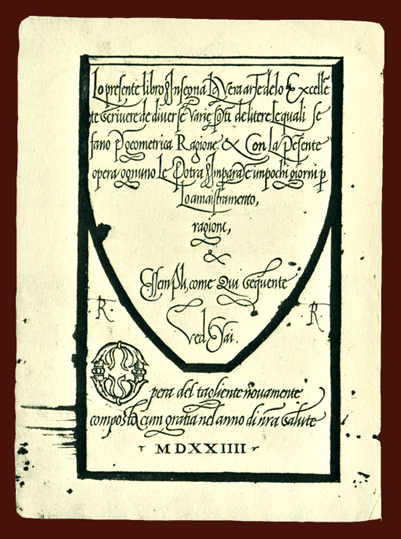 Lo presente libro Insegna La Vera arte delo Excellē
te scriuere de diuersi varie sorti de litere lequali se
fano p geometrica Ragione & Con la Presente
opera ognuno Le Potra Imparare in pochi giorni p
Lo amaistramento,
ragioni,
&
Essempli, come Qui sequente
R R
Vedrai.
Opera del tagliente nouamente
composta cum gratia nel anno di nrā salute
MDXXIIII